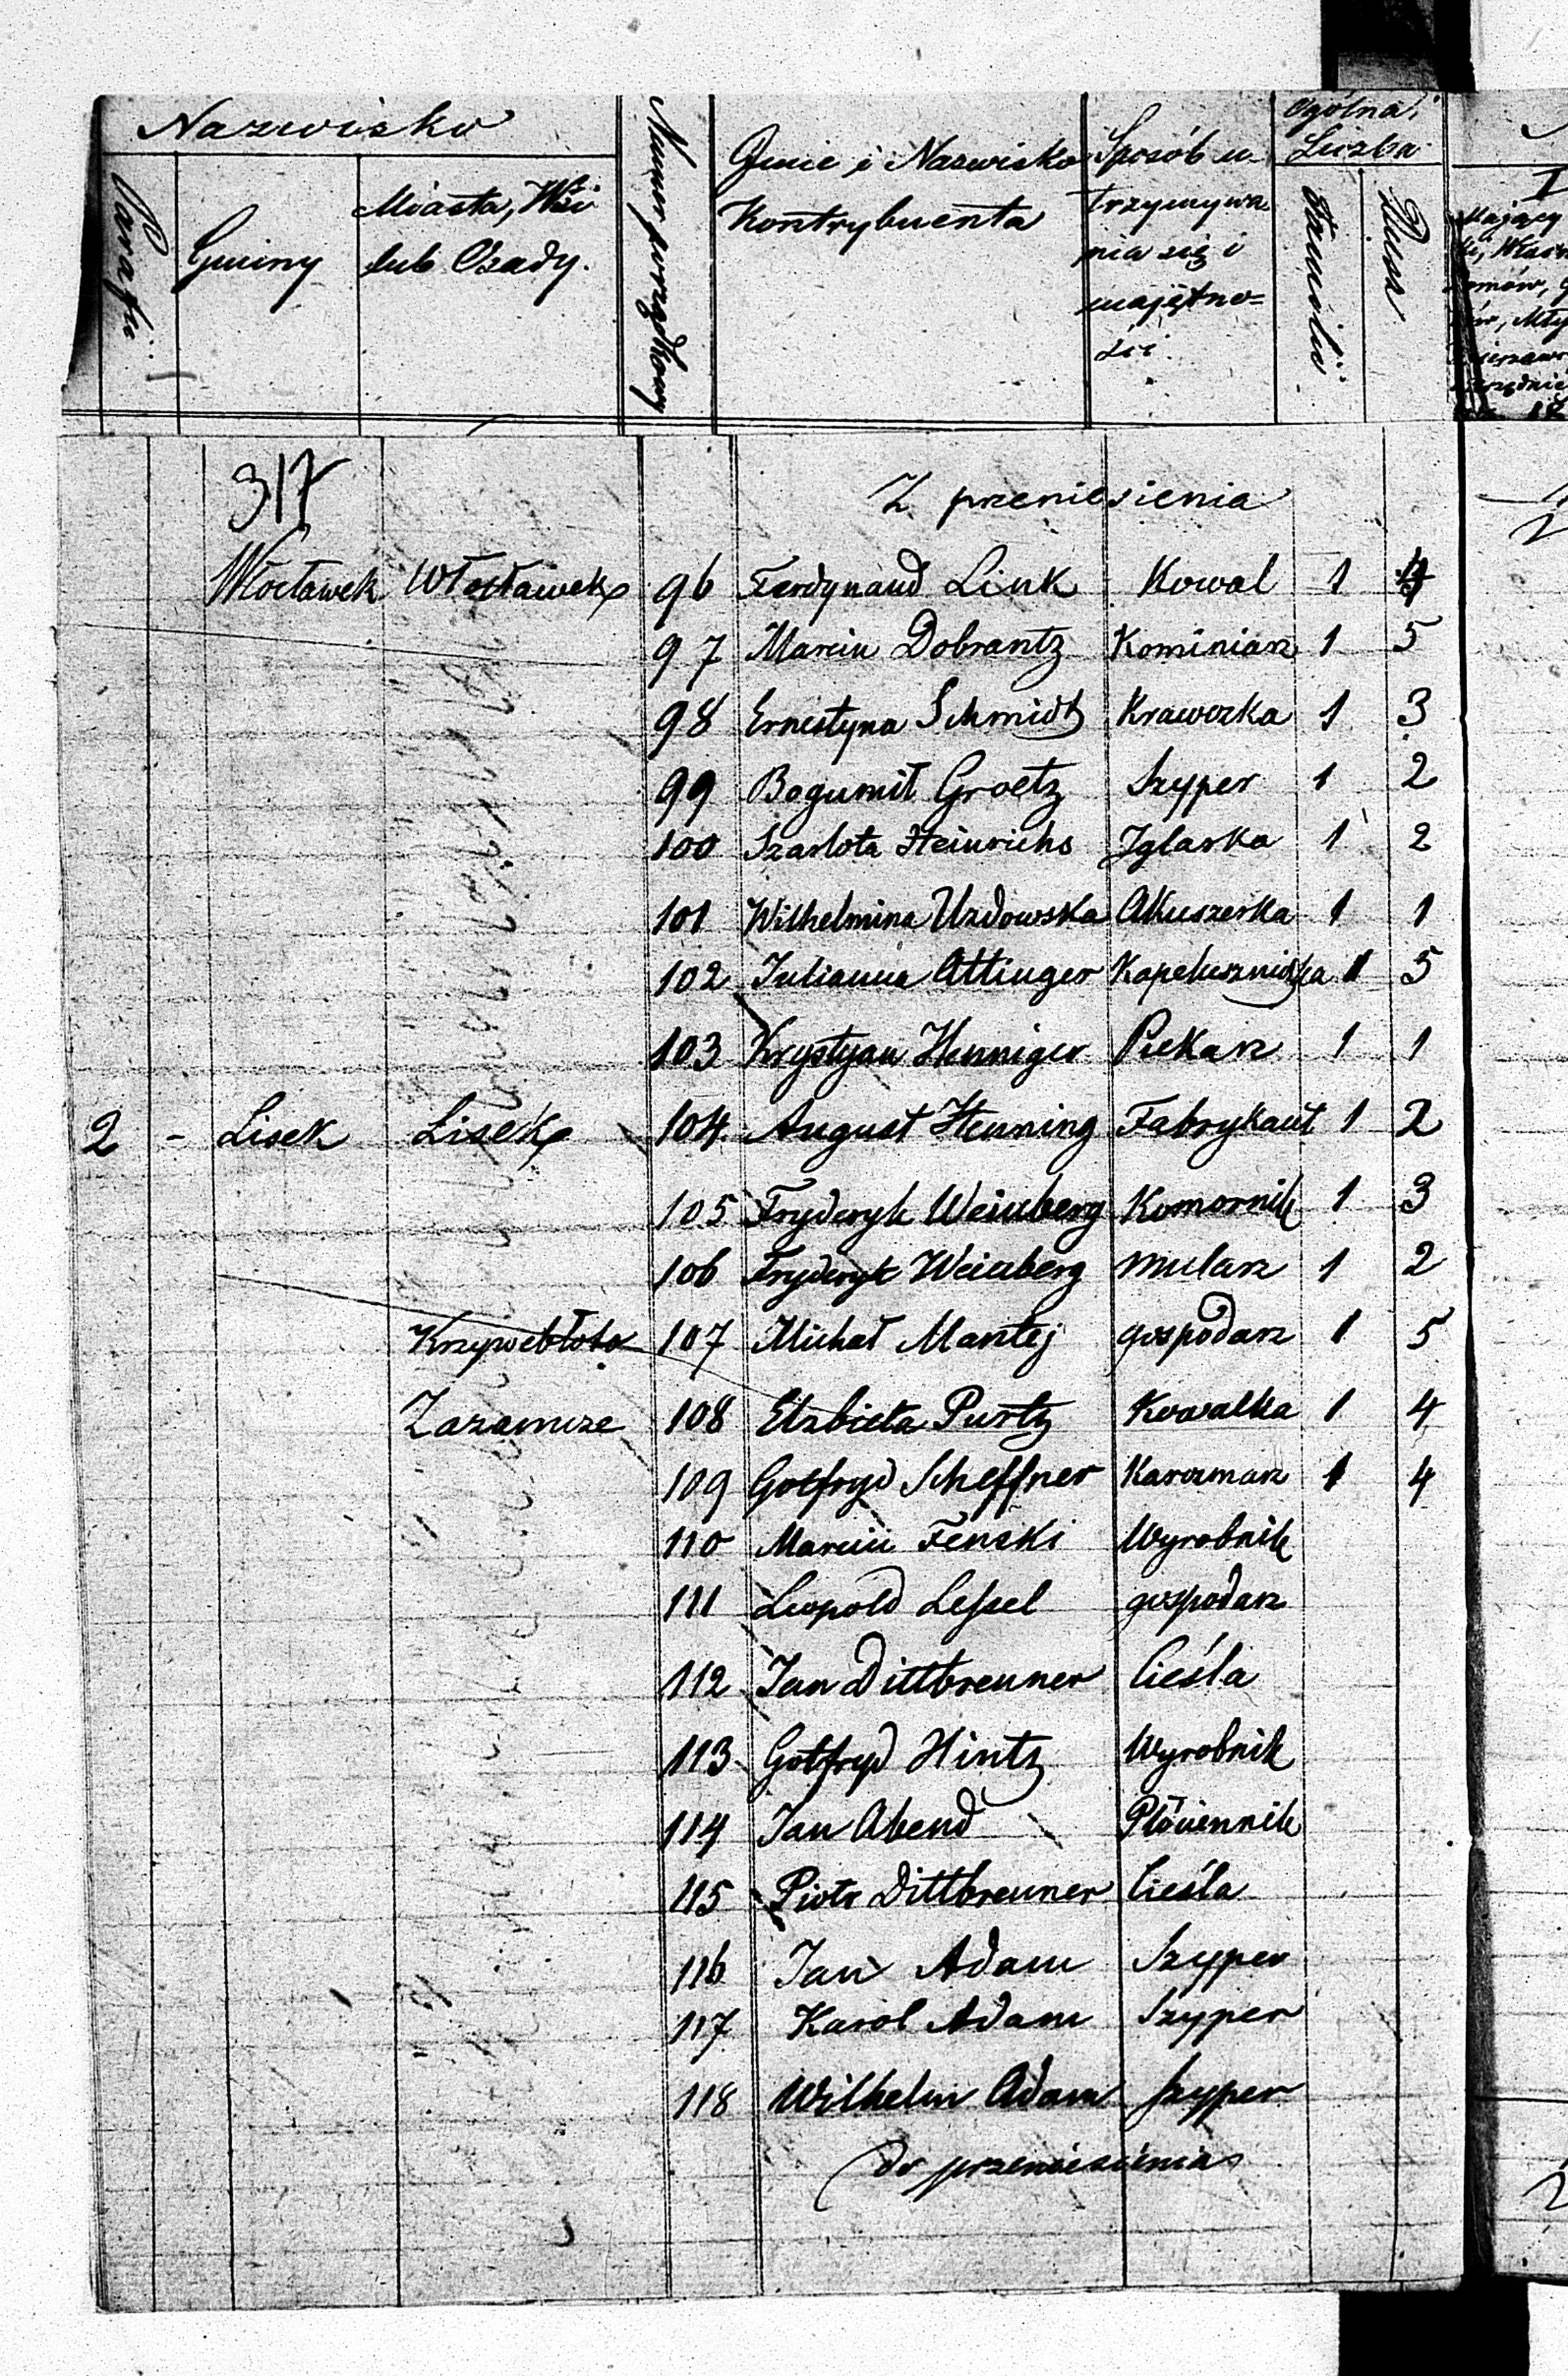 Nazwisko
Parafii
Gminy
Miasta, Wsi
lub Osady.
Numer porządkowy
Imie i Nazwisko
Kontrybuenta
Sposób u-
trzymywa
nia się i
majętno=
ści
Ogólna
Liczba
Familii
Dusz
317
Z przeniesienia
Włocławek Włocławek 96 Ferdynand Link Kowal 1 4
97 Marcin Dobrantz Kominiarz 1 5
98 Ernestyna Schmidt Krawczka 1 3
99 Bogumił Groetz Szyper 1 2
100 Szarlota Heinrichs Iglarka 1 2
101 Wilhelmina Uzdowska Akuszerka 1 1
102 Julianna Attinger Kapeluszniczka 1 5
103 Krystyan Henniger Piekarz 1 1
2 - Lisek Lisek 104 August Henning Fabrykant 1 2
105 Fryderyk Weinberg Komornik 1 3
106 Fryderyk Weinberg mularz 1 2
Krzywebłoto 107 Michał Mantej gospodarz 1 5
Zazamcze 108 Elzbieta Purtz Kowalka 1 4
109 Gotfryd Scheffner Karczmarz 1 4
110 Marcin Fenski Wyrobnik
111 Leopold Lessel gospodarz
112 Jan Dittbrenner Cieśla
113 Gotfryd Hintz Wyrobnik
114 Jan Abend Płóciennik
115 Piotr Dittbrenner Cieśla
116 Jan Adam Szyper
117 Karol Adam Szyper
118 Wilhelm Adam Szyper
do przeniesienia